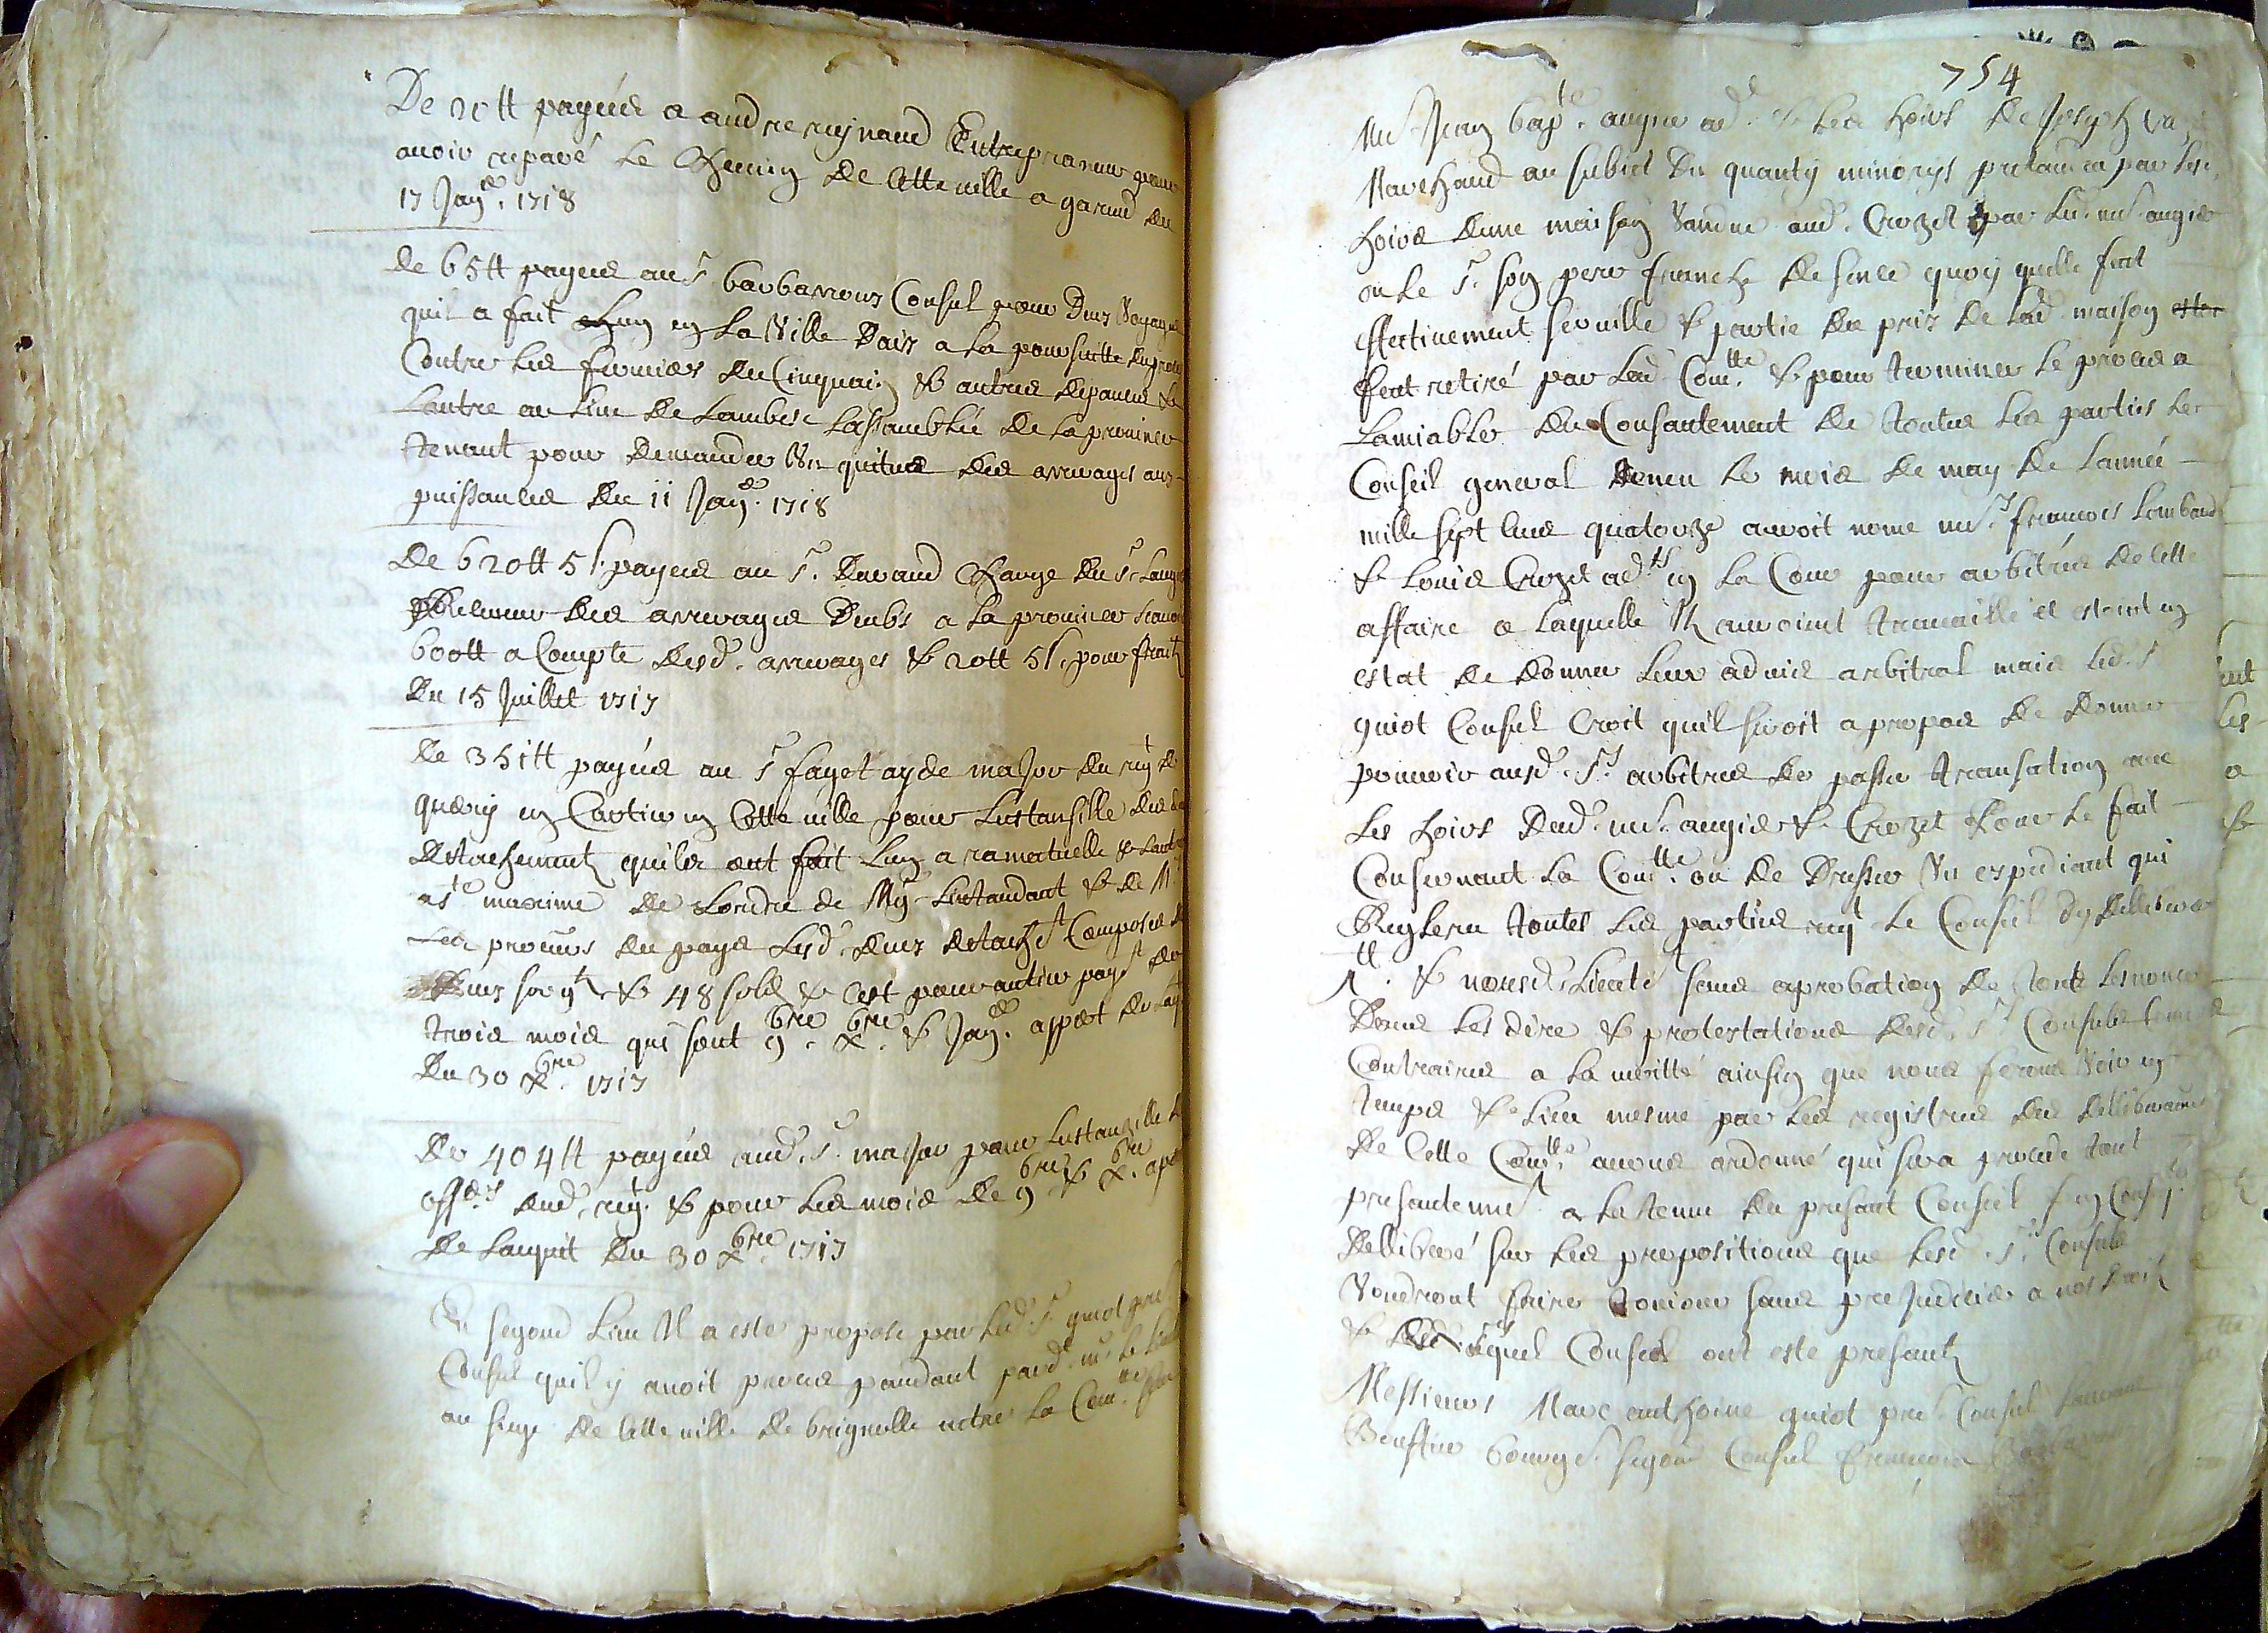 De 20tt payées a andre reynaud Entrepraneur pour
avoir reparé le Chemin de Cette ville a garend du
17 Janer. 1718
De 65tt payées au sr barbarroux Consul pour Deux Voyages
quil a fait Lun en La Ville Daix a la poursuitte du proces
Contre les fermiers du Cinquain & autres depances &
Lautre au lieu de Lambesc Lassamblée de la province
tenant pour demander Un quitus des arrerages aux
puissances du 11 Janer. 1718
De 620tt 5s. payees au sr. Durand Charge du sr. Laugier
Receveur des arrerages Deubs a la province scavoir
600tt a Compte desd. arrerages & 20tt 5s. pour fraix
Du 15 Juillet 1717
De 351tt payées au sr fayet ayde major du regt de
en Cartier en Cette ville pour Lustansille des deux
Detachements quils ont fait Lun a ramatuelle & Lautre
a ste maxime de Lordre de Mgr Lintandant & de Mrs
Les procurs du pays Lesd. deux detachts Composés de
deux sergts & 48 solds & Cest pour antier payt de
trois mois qui sont 9bre. Xbre. & Janer. apert de laqt
Du 30 Xbre. 1717
De 404tt payées aud. sr. major pour Lustansille des
offers dud. regt. & pour les mois de 9bre & Xbre. apert
De Laquit du 30 Xbre. 1717
En segond Lieu Il a este propose par led. sr. guiot pr.
Consul quil y avoit proces pandant pard. mr. le lieut
au siege de Cette ville de brignolle entre la Comtte.
754
Me Jean bapte. augier ad. & les hoirs de Joseph
Marchand au subiet du quanty minoris pretandu par les
hoirs dune maison Vandue aud. Crozet par led. me. augier
ou le sr. son pere franche de sence quoy quelle feut
effectivement serville & partie du prix de lad. maison
feut retiré par lad. Comtte. & pour terminer le proces a
Lamiable du Consantement de toutes les parties le
Conseil general tenu le mois de may de lannée
mille sept cens quatorze avoit nome mes. francois Lombard
& Louis Crozet adts en la Cour pour arbitres de Cette
affaire a laquelle Ils auroient travaille et estoint en
estat de donner leur advis arbitral mais led. sr
guiot Consul Croit quil seroit a propos de donner
pouvoir ausd. srs. arbitres de passer transation avec
Les hoirs dud. me. augier & Crozet pour le fait
Consernant la Comtte. ou de dresser Un expediant qui
Reglera toutes les parties reqt le Conseil dy dellibere
Ntt. & nousd. Lieutt sans aprobation de
les dire & protestations desd. srs Consuls Comme
Contraires a la veritté ainsin que nous ferons Voir en
temps & Lieu mesme par les registres des dellibrations
De Cette Comtte. avons ordonné qui sera procede tant
presantemt. a la tenue du presant Conseil
Dellibere sur les propositions que lesd. srs. Consuls
Voudront faire sans preJudice a nos droits
& Auquel Conseil ont este presants
Messieurs Marc anthoine guiot pr. Consul
bourgs. segond Consul francois